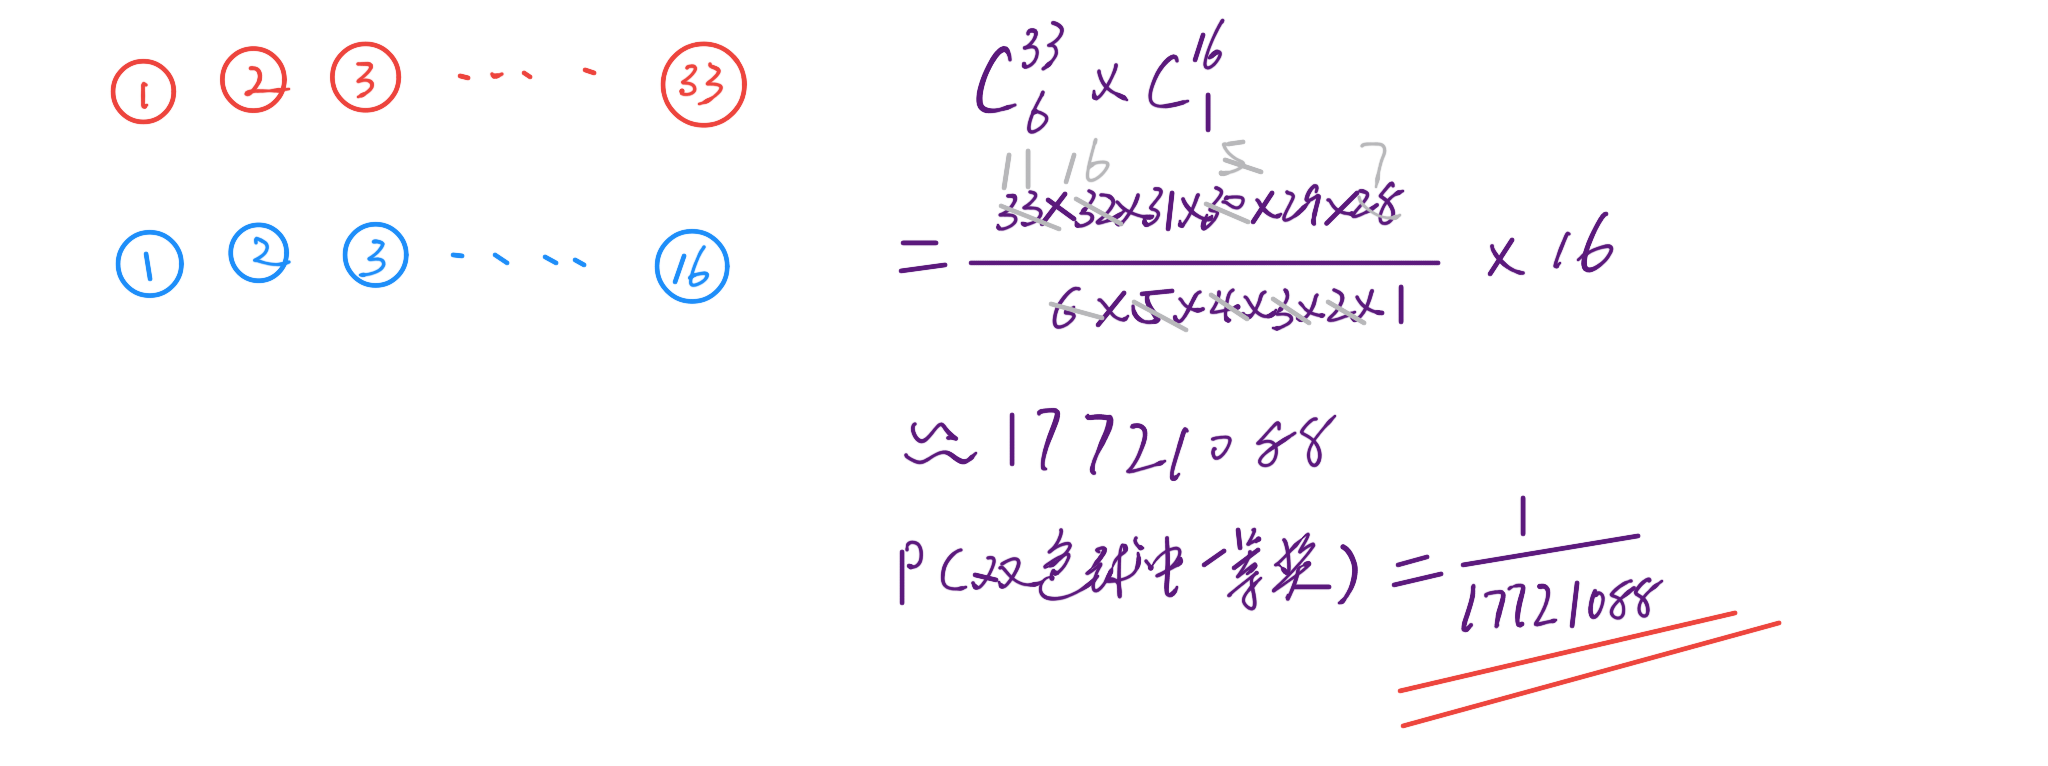 1 2 3 ···· 33
1 2 3 ···· 16
C₆³³ × C₁¹⁶
11 16 5 7
= 33×32×31×30×29×28 / 6×5×4×3×2×1 × 16
≈ 17721088
P(双色球中一等奖) = 1 / 17721088